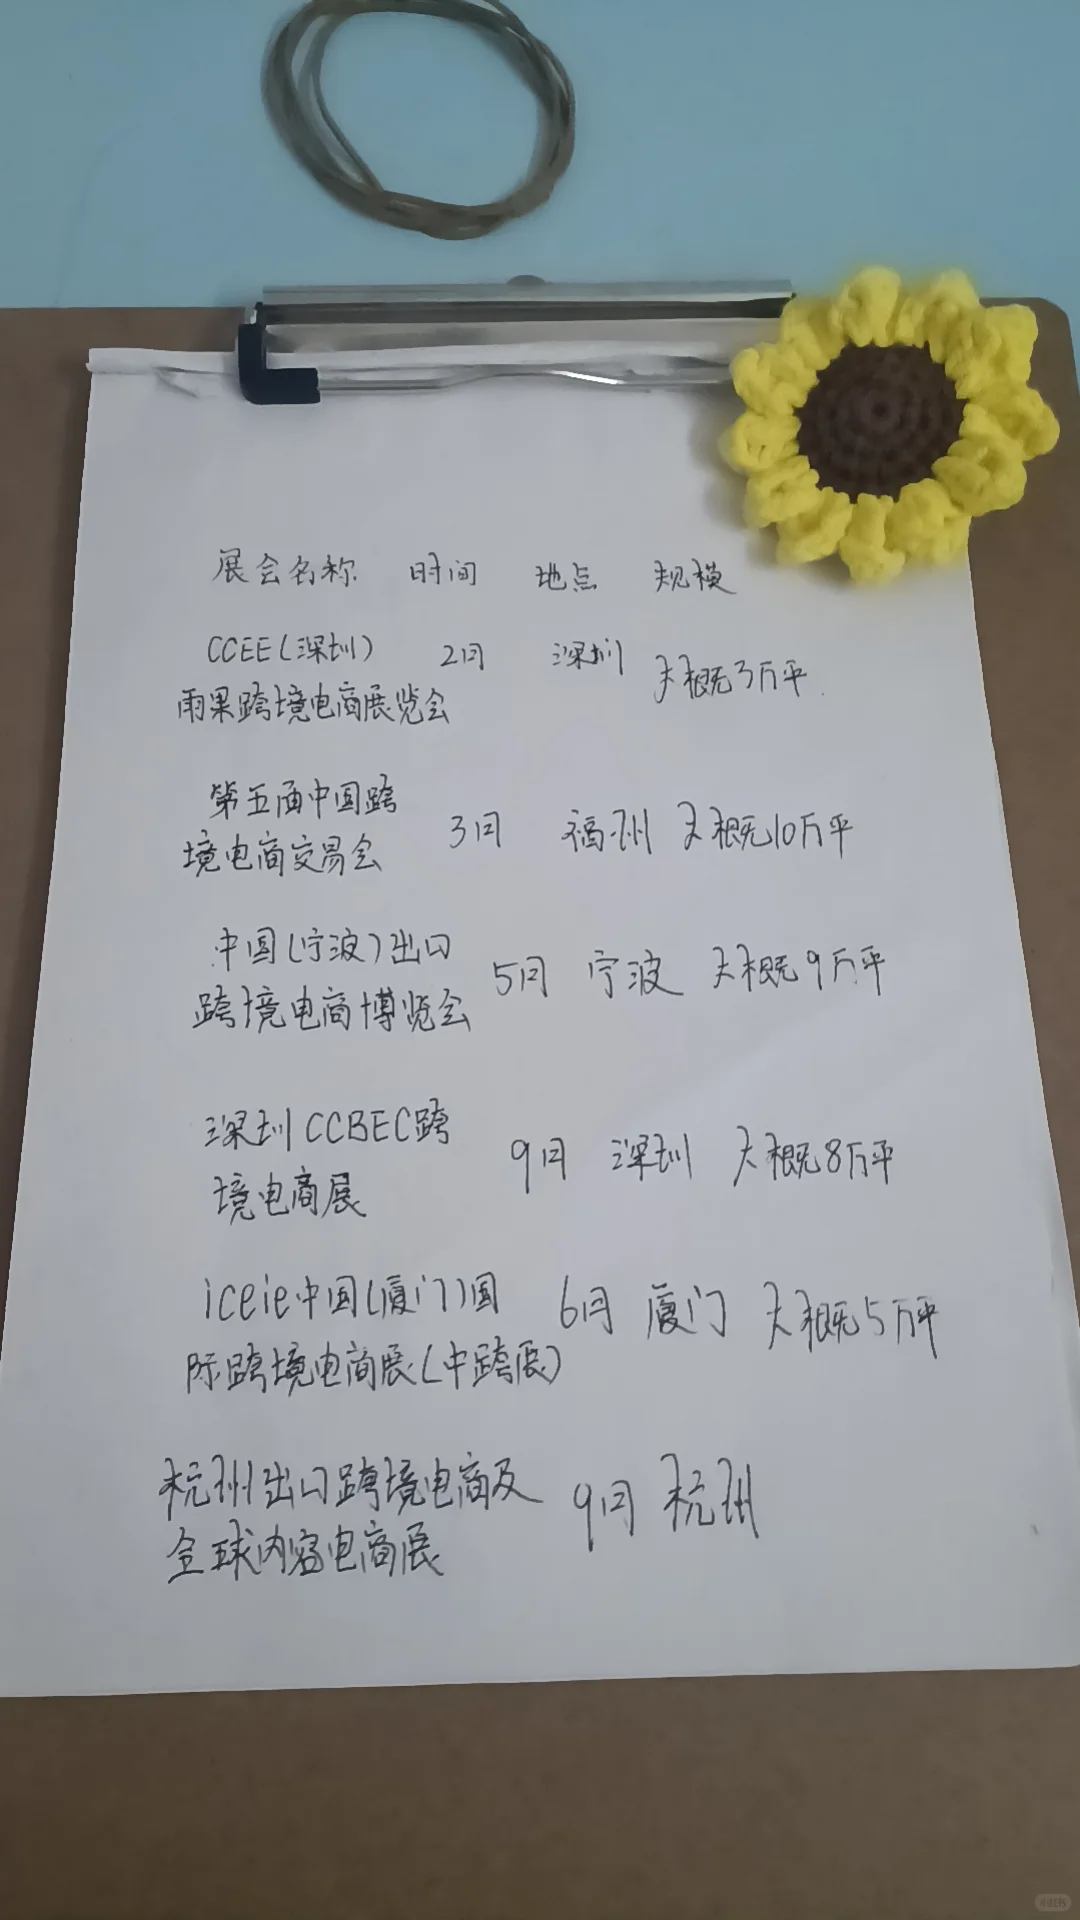 展会名称 时间 地点 规模
CCEE(深圳) 2月 深圳 大概3万平
雨果跨境电商展览会
第五届中国跨
境电商交易会 3月 福州 大概10万平
中国(宁波)出口
跨境电商博览会 5月 宁波 大概9万平
深圳CCBEC跨
境电商展 9月 深圳 大概8万平
iceie中国(厦门)国 6月 厦门 大概5万平
际跨境电商展(中跨展)
杭州出口跨境电商及 9月 杭州
全球内容电商展
小红书